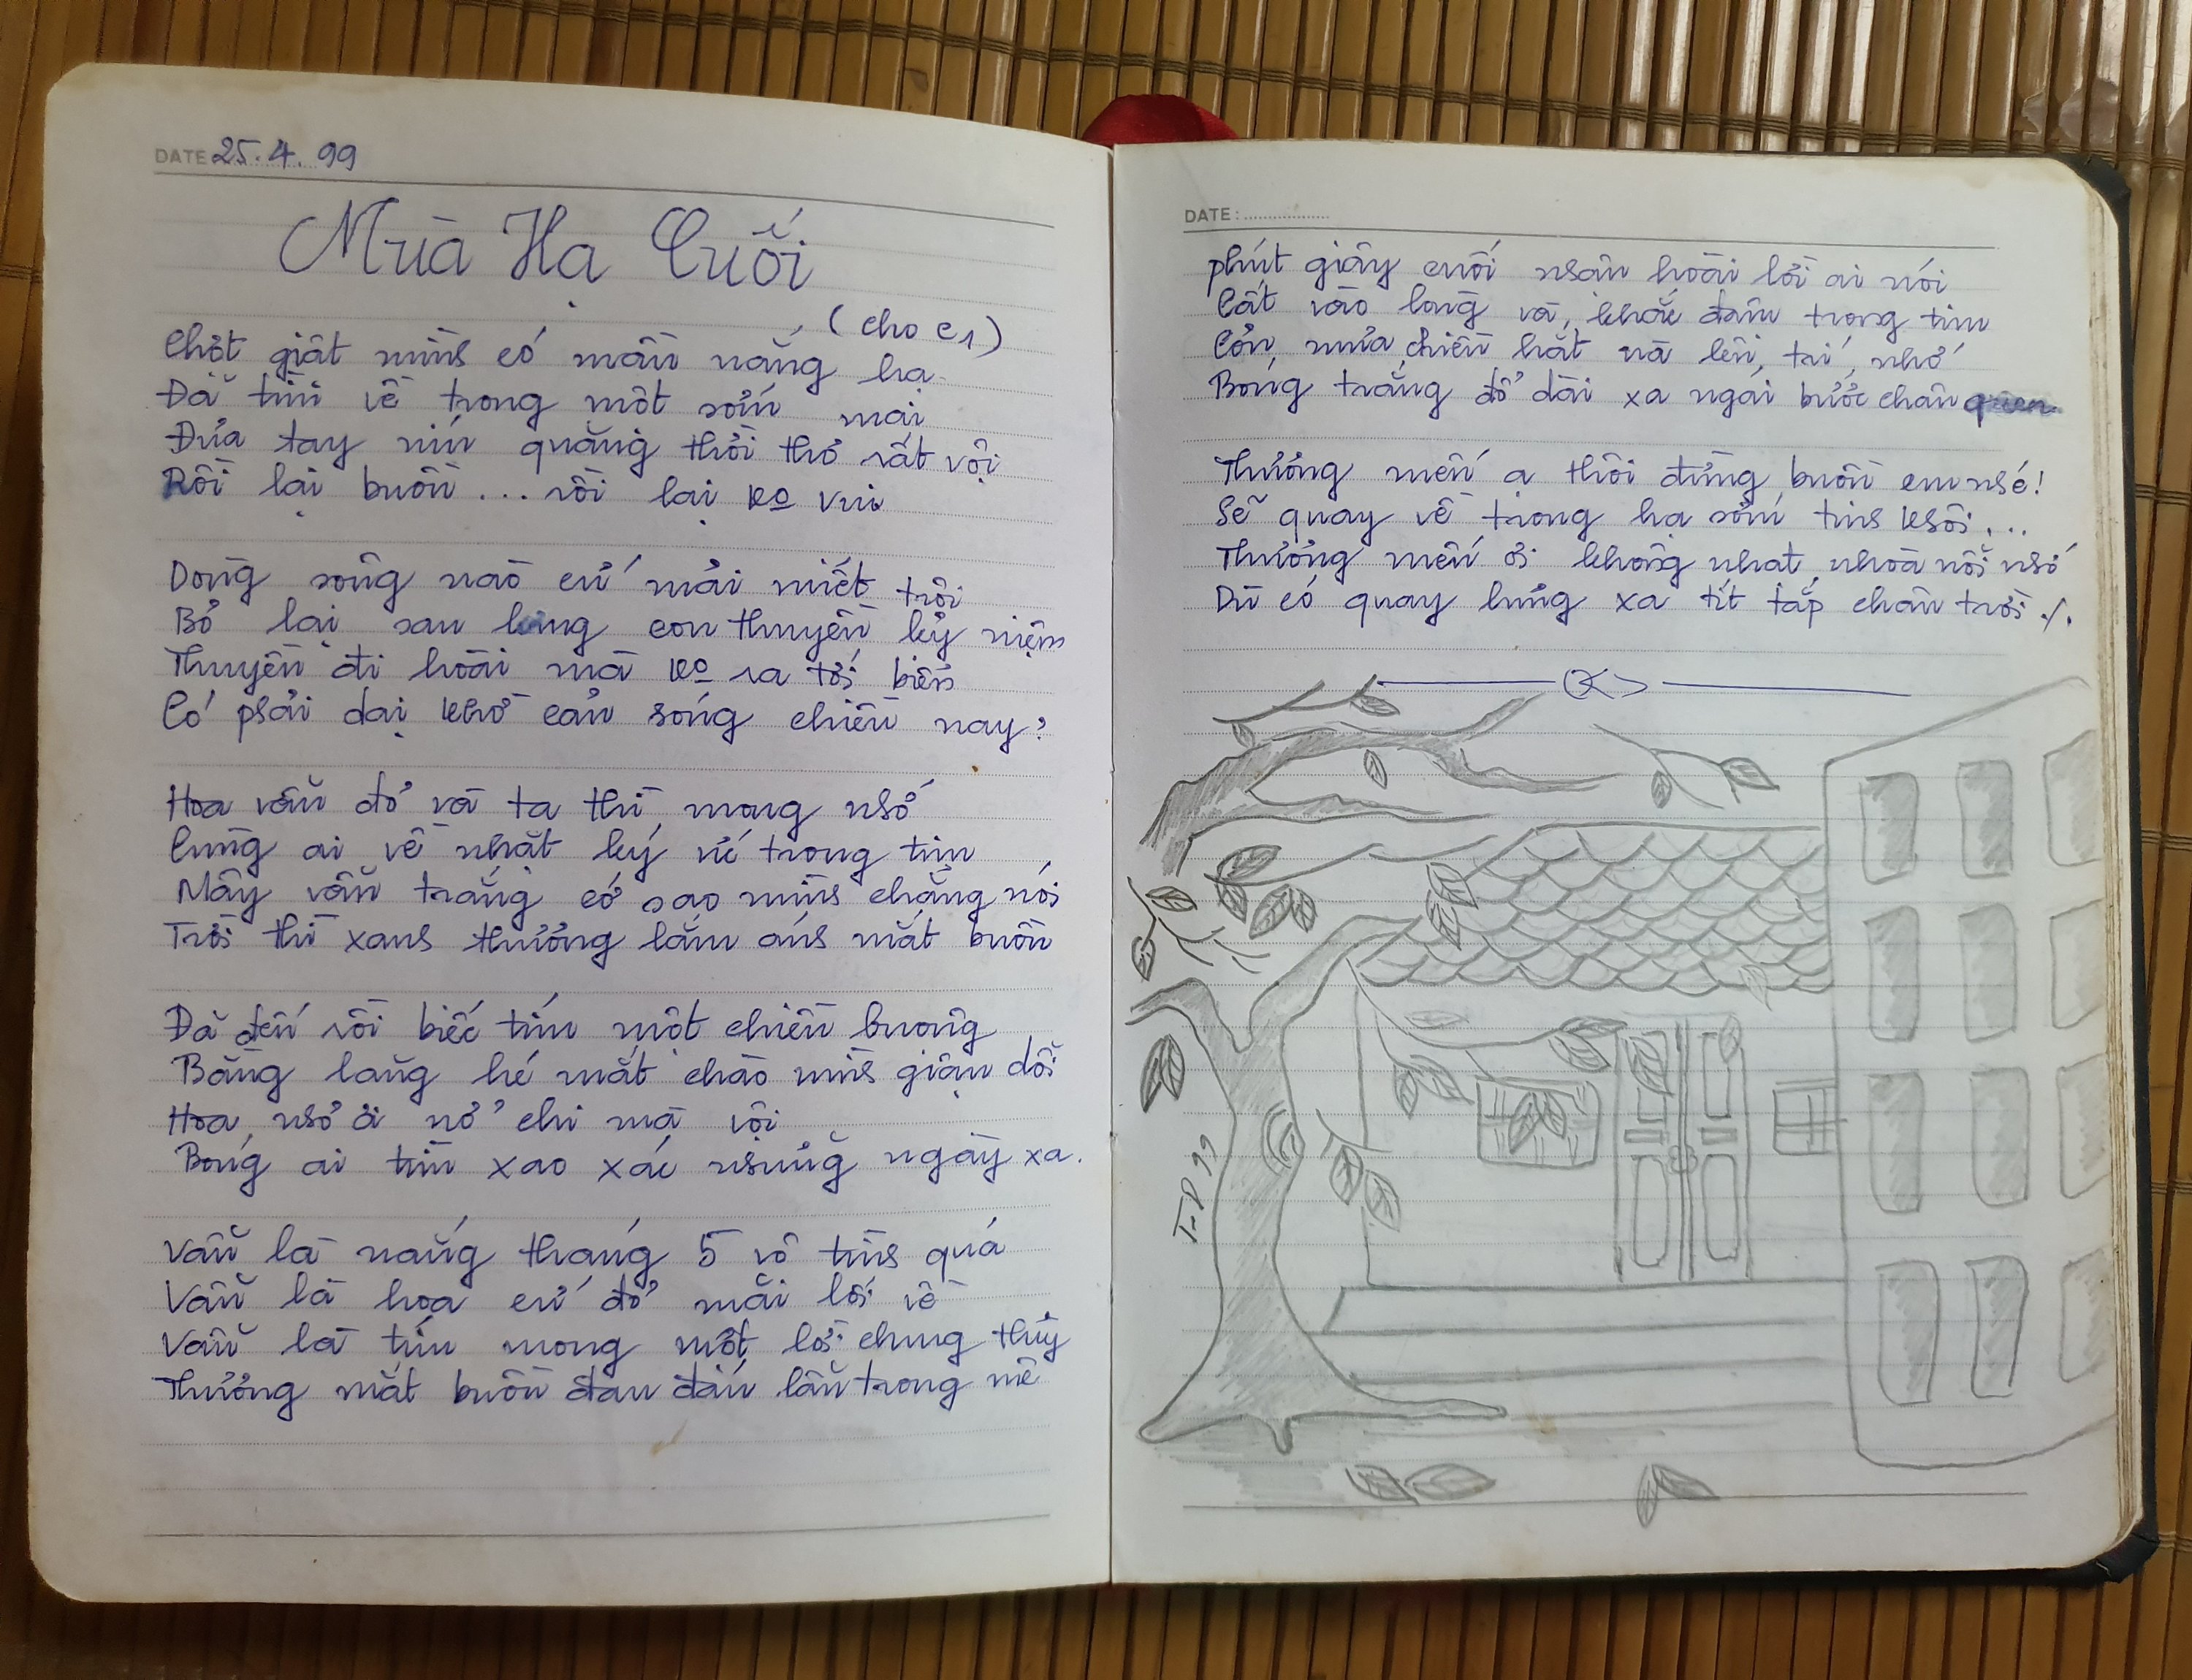 DATE 25.4.99
Mùa Hạ Cuối
(cho c1)
Chợt giật mình có màn nắng hạ
Đã tìm về trong một sớm mai
Đưa tay níu quãng thời thơ rất vội
Rồi lại buồn... rồi lại ko vui
Dòng sông nào cứ mải miết trôi
Bỏ lại sau lưng con thuyền kỷ niệm
Thuyền đi hoài mà ko ra tới biển
Có phải dại khờ cản sóng chiều nay?
Hoa vẫn đỏ và ta thì mong nhớ
Cùng ai về nhặt ký ức trong tim
Mây vẫn trắng cớ sao mình chẳng nói
Trời thì xanh thương lắm ánh mắt buồn
Đã đến rồi biếc tím một chiều buông
Bằng lăng hé mắt chào mình giận dỗi
Hoa nhỏ ơi nở chi mà vội
Bóng ai tìm xao xác những ngày xa.
Vẫn là nắng tháng 5 vô tình quá
Vẫn là hoa cứ đỏ mãi lối về
Vẫn là tím mong một lời chung thủy
Thương mắt buồn đau đáu lẫn trong mê
DATE:
phút giây cuối nhận hoài lời ai nói
Cất vào lòng và khắc đậm trong tim
Cơn mưa chiều hắt nả lên tai nhớ
Bóng trăng đổ dài xa ngái bước chân quen
Thương mến ạ thôi đừng buồn em nhé!
Sẽ quay về trong hạ sớm tinh khôi...
Thương mến ơi không nhạt nhòa nỗi nhớ
Dù có quay lưng xa tít tắp chân trời ./.
T-D 99